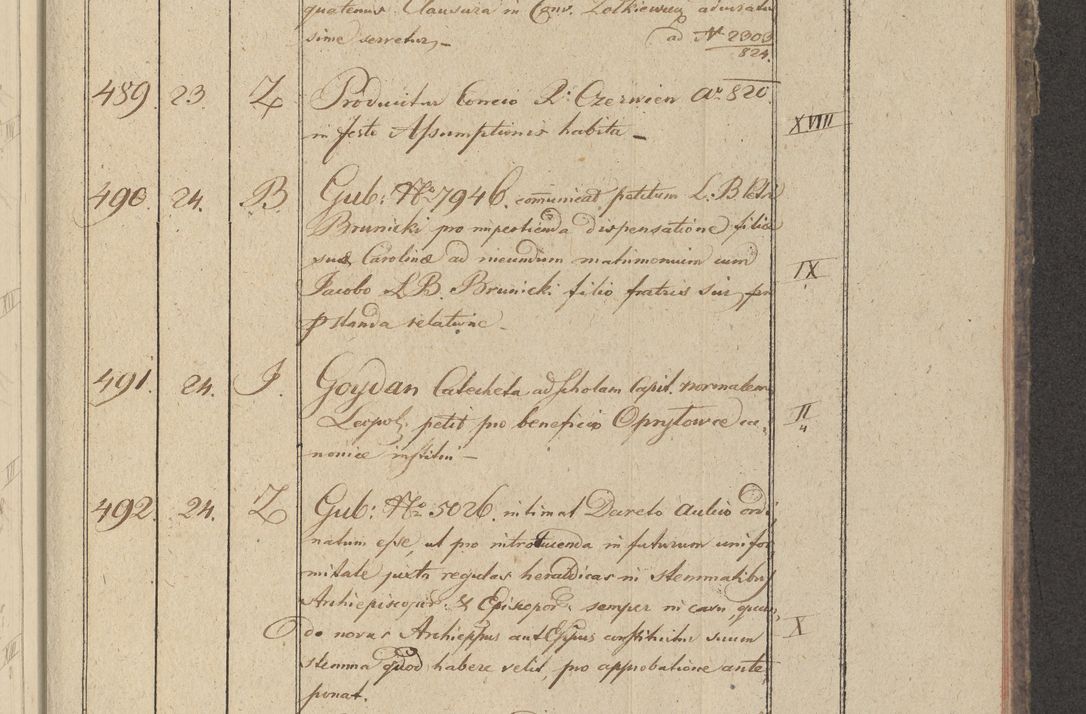 quatenus Clausura in Conv. Zolkieviens adcuratis
sime servetur, – ad N 2303
824.
489. 23. Z Producitur Concio R: Czerwien Aº 820.
in festo Assumptionis habita – XVIII
490. 24. B. Gub: Nº 7946. com̄unicat petitum L. B. Petri
Brunicki pro impertienda dispensatione filiæ
suæ Carolinæ ad ineundum matrimonium cum
Jacobo L. B. Brunicki filio fratris sui, pro IX
pstanda relatione –
491. 24. J. Goydan Catecheta ad scholam Capit. normalem
Leopol: petit pro beneficio Opryłowce ca, II
nonice institui –
492. 24. Z Gub: Nº 5026. intimat Dcreto aulico ordi,
natum esse, ut pro introducenda in futurum unifor
mitate juxta regulas heraldicas in stemmatibus
Archiepiscopor: & Episcopor: semper in casu, quan,
do novus Archieppus aut Eppus constituitur suum X
stemma quod habere velit, pro approbatione ante
ponat.